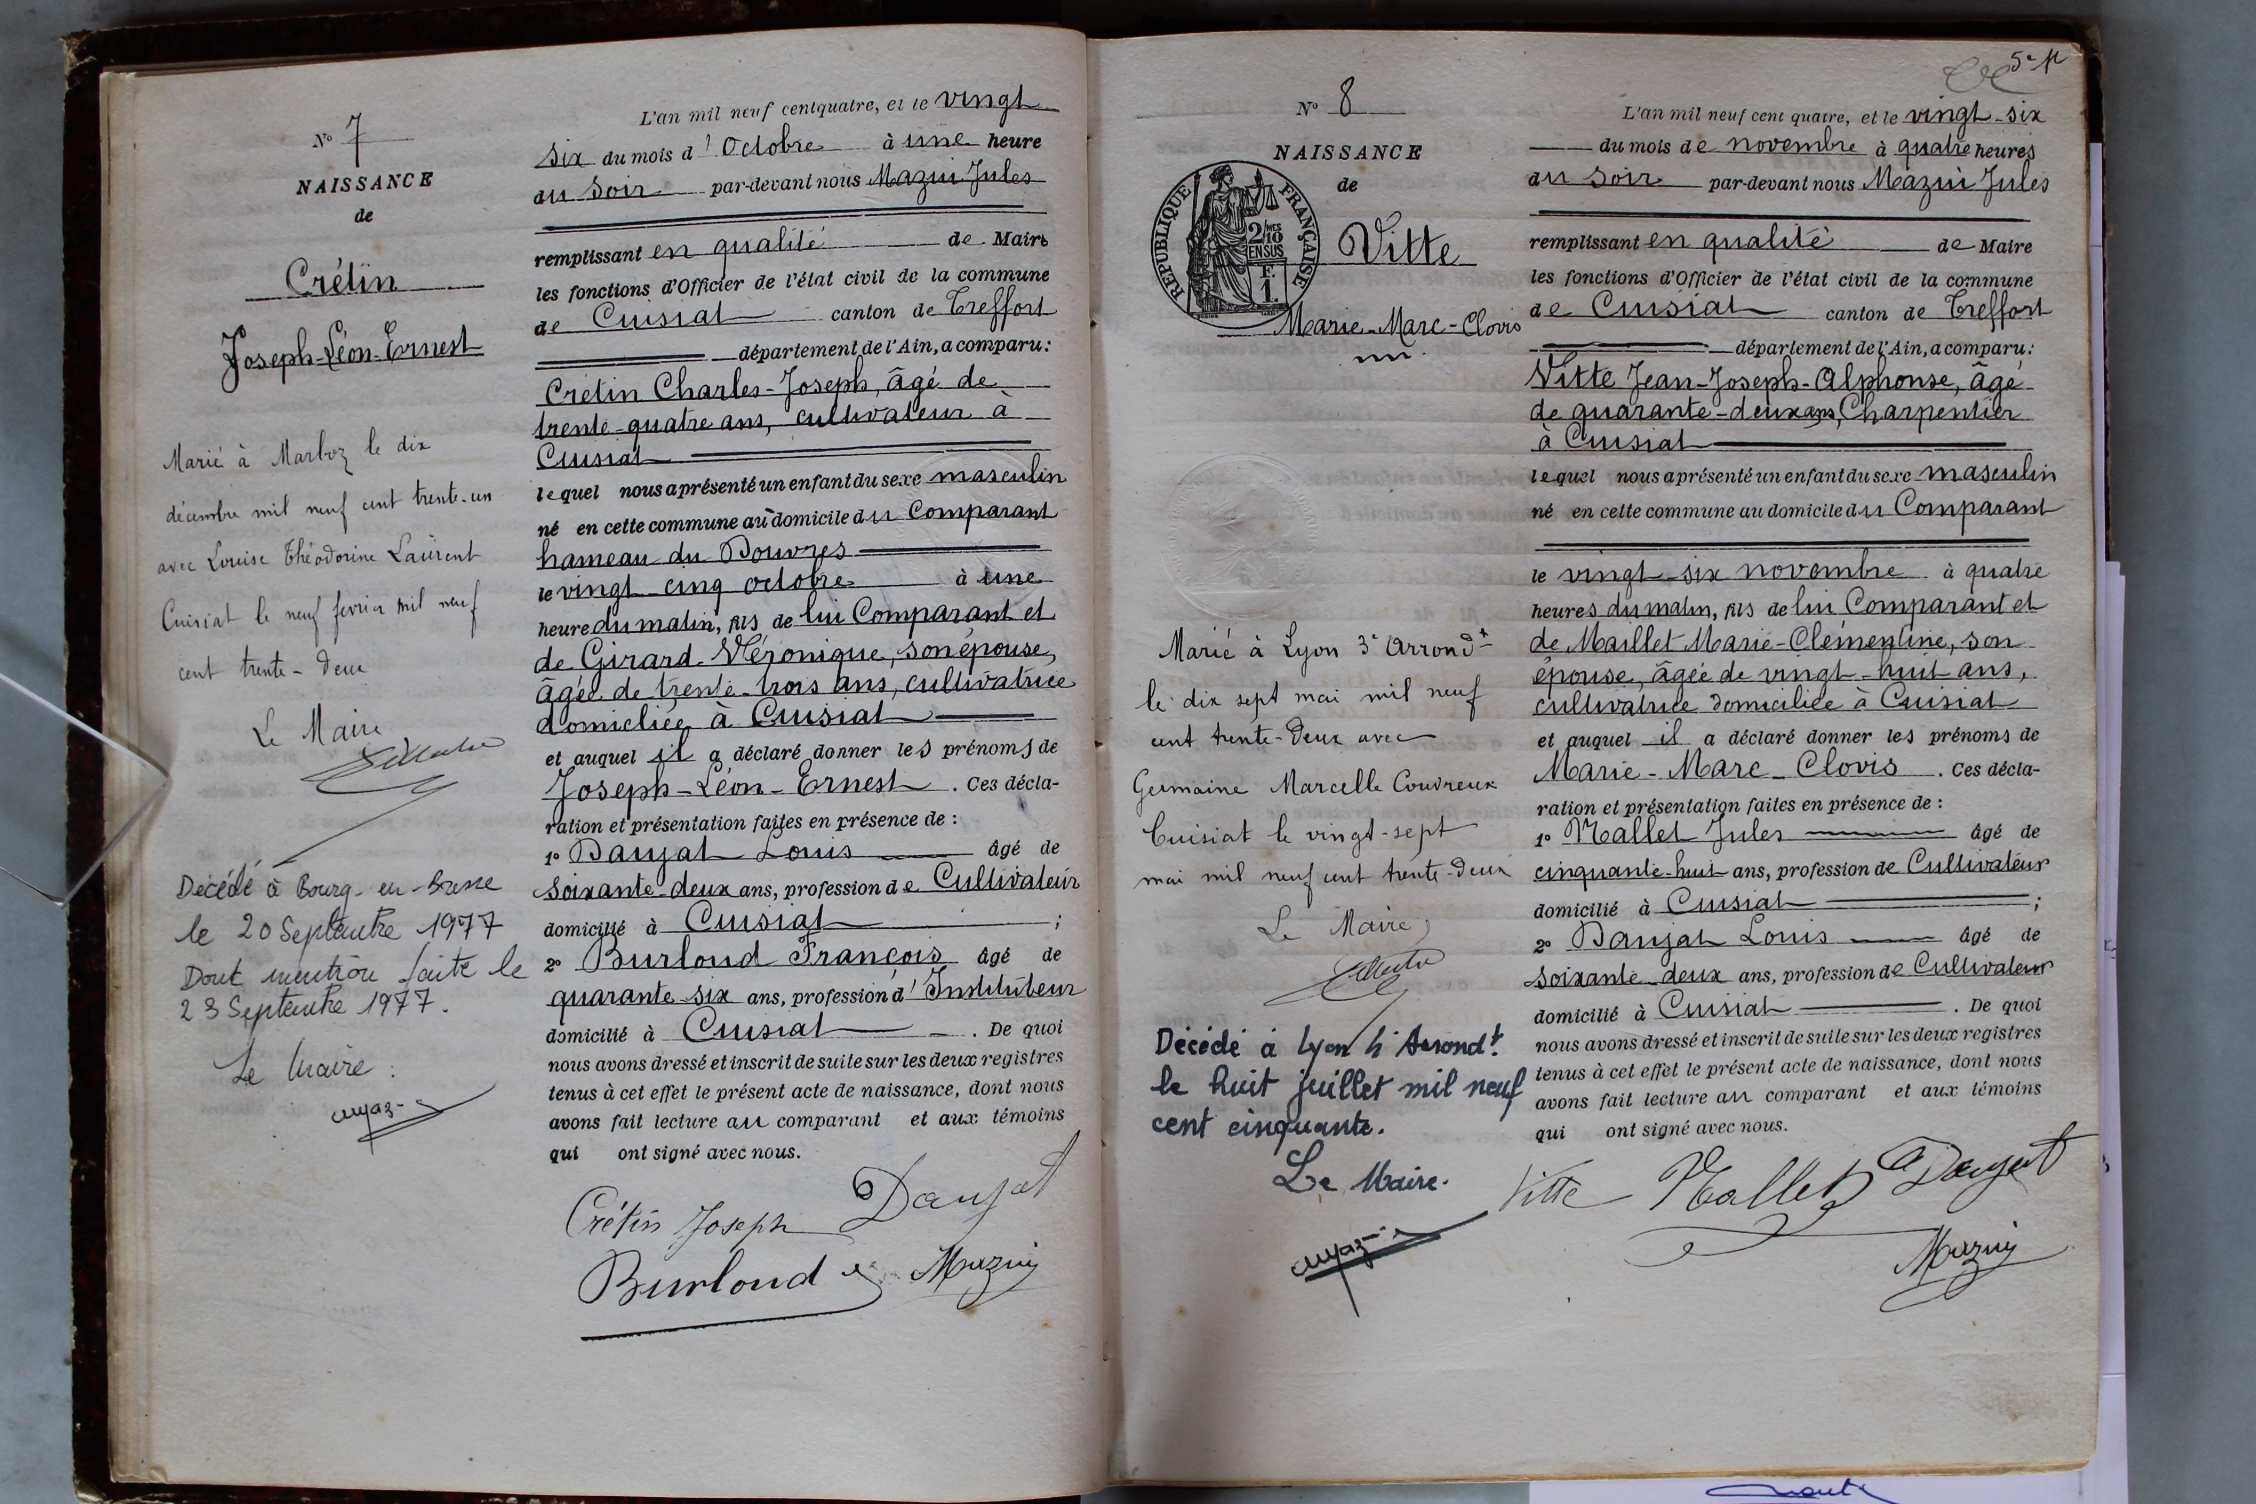 Nº 7
NAISSANCE
de
Crétin
Joseph-Léon-Ernest
Marié à Marboz le dix
décembre mil neuf cent trente-un
avec Louise Théodorine Laurent
Cuisiat le neuf fevrier mil neuf
cent trente-deux
Le Maire
Décédé à Bourg-en-Bresse
le 20 Septembre 1977
Dont mention faite le
23 Septembre 1977.
Le Maire :
L'an mil neuf cent quatre, et le vingt
six du mois d'Octobre à une heure
du Soir par-devant nous Mazui Jules
remplissant en qualité de Maire
les fonctions d'Officier de l'état civil de la commune
de Cuisiat canton de Treffort
département de l'Ain, a comparu:
Crétin Charles-Joseph, âgé de
trente-quatre ans, cultivateur à
Cuisiat
lequel nous a présenté un enfant du sexe masculin
né en cette commune au domicile du Comparant
hameau du Pouvres
le vingt cinq octobre à une
heure du matin, fils de lui Comparant et
de Girard Véronique, son épouse,
âgée de trente-trois ans, cultivatrice
domicliée à Cuisiat
et auquel il a déclaré donner les prénoms de
Joseph-Léon-Ernest. Ces décla-
ration et présentation faites en présence de :
1º Daujat Louis âgé de
soixante-deux ans, profession de Cultivateur
domicilié à Cuisiat ;
2º Burloud François âgé de
quarante-six ans, profession d'Instituteur
domicilié à Cuisiat. De quoi
nous avons dressé et inscrit de suite sur les deux registres
tenus à cet effet le présent acte de naissance, dont nous
avons fait lecture au comparant et aux témoins
qui ont signé avec nous.
Crétin Joseph Daujat
Burloud Mazuy
5e p
Nº 8
NAISSANCE
de
RÉPUBLIQUE FRANÇAISE
2/10 MES
EN SUS
F.
1.
Vitte
Marie-Marc-Clovis
Marié à Lyon 3e Arrondt
le dix sept mai mil neuf
cent trente-deux avec
Germaine Marcelle Couvreux
Cuisiat le vingt-sept
mai mil neuf cent trente-deux
Le Maire,
Décédé à Lyon 4e Arrondt.
le huit juillet mil neuf
cent cinquante.
Le Maire.
L'an mil neuf cent quatre, et le vingt-six
du mois de novembre à quatre heures
du Soir par-devant nous Mazui Jules
remplissant en qualité de Maire
les fonctions d'Officier de l'état civil de la commune
de Cuisiat canton de Treffort
département de l'Ain, a comparu:
Vitte Jean-Joseph-Alphonse, âgé
de quarante-deux ans, Charpentier
à Cuisiat
lequel nous a présenté un enfant du sexe masculin
né en cette commune au domicile du Comparant
le vingt-six novembre à quatre
heures du matin, fils de lui Comparant et
de Maillet Marie-Clémentine, son
épouse, âgée de vingt-huit ans,
cultivatrice domiciliée à Cuisiat
et auquel il a déclaré donner les prénoms de
Marie-Marc-Clovis. Ces décla-
ration et présentation faites en présence de :
1º Mallet Jules âgé de
cinquante-huit ans, profession de Cultivateur
domicilié à Cuisiat ;
2º Daujat Louis âgé de
soixante-deux ans, profession de Cultivateur
domicilié à Cuisiat. De quoi
nous avons dressé et inscrit de suite sur les deux registres
tenus à cet effet le présent acte de naissance, dont nous
avons fait lecture au comparant et aux témoins
qui ont signé avec nous.
Vitte Mallet Daujat
Mazuy